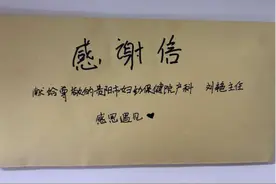 感谢信
献给尊敬的贵阳市妇幼保健院产科 刘艳主任
感恩遇见♥